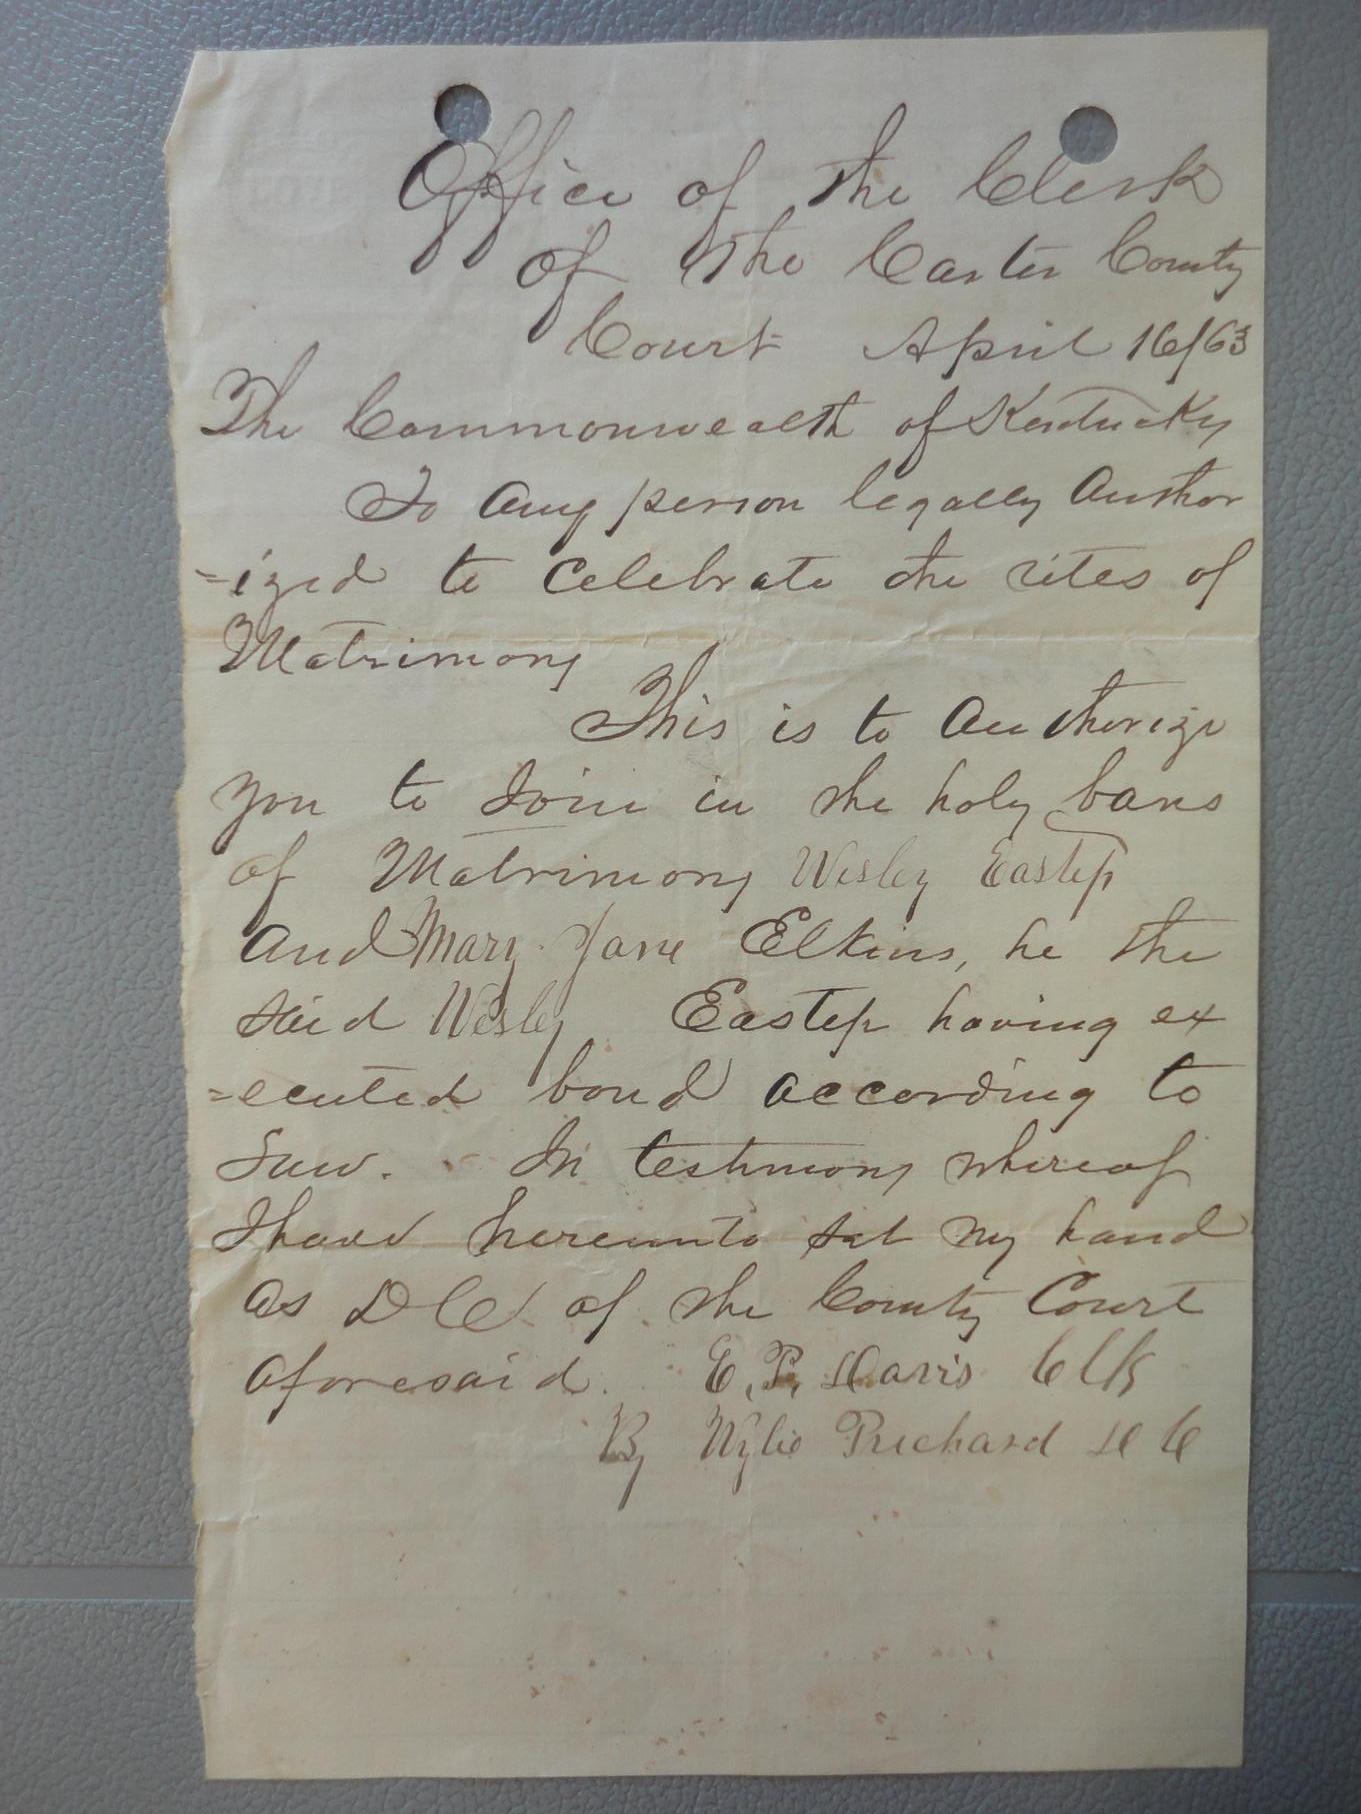 Office of the Clerk
of the Carter County
Court April 16/63
The Commonwealth of Kentucky
To any person legally Author
=ized to Celebrate the rites of
Matrimony
This is to Authorize
you to Join in the holy bans
of Matrimony Wesley Eastep
and Mary Jane Elkins, he the
said Wesley Eastep having ex
=ecuted bond according to
Law. In testimony whereof
I have hereunto set my hand
as D C of the County Court
aforesaid. E. P. Davis Clk
By Wylie Prichard D C